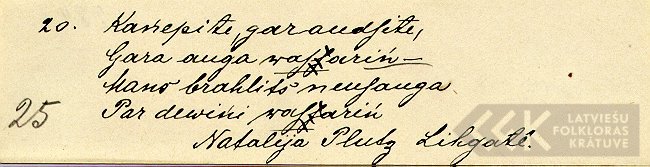 20. Kaņepite, garaudsite,
Gara auga wassariņ—
Mans brahlits neusauga
25 Par dewiņi wassariņ
Natalija Plutz Lihgatē.
LATVIEŠU
FOLKLORAS
KRĀTUVE